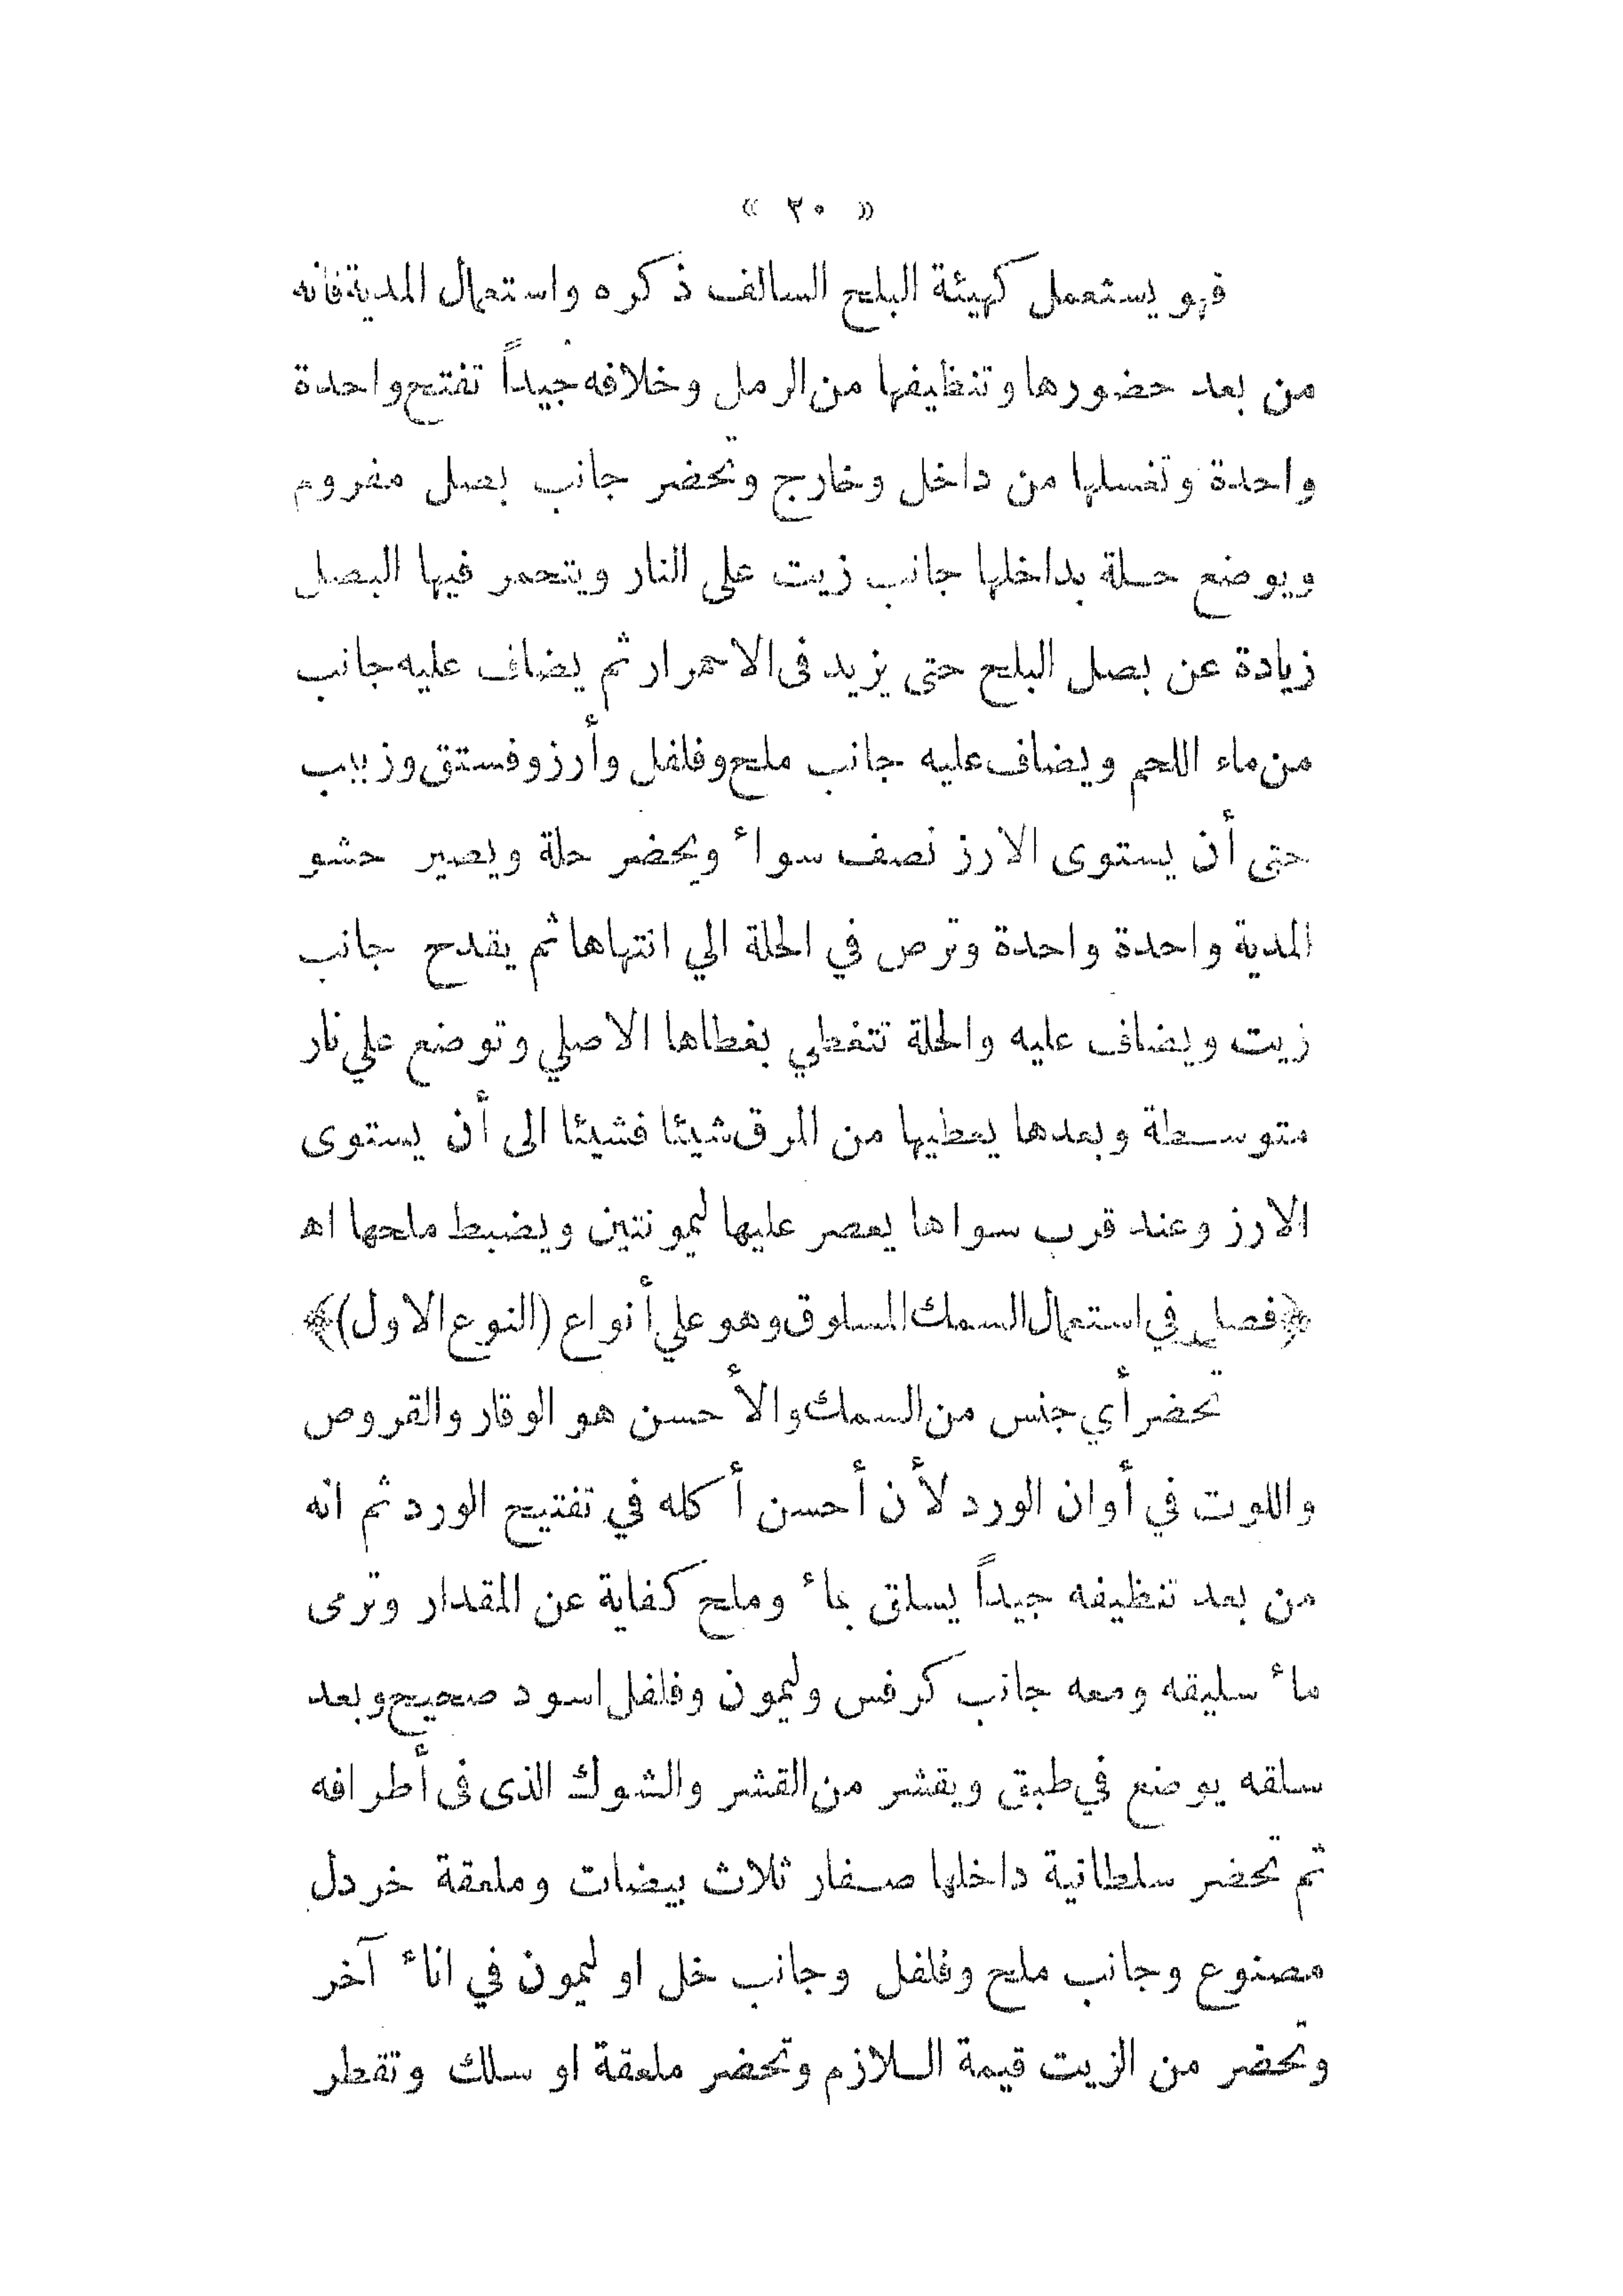 « ٢٠ »
فهو يستعمل كهيئة البلح السالف ذكره واستعمال المدية فانه
من بعد حضورها وتنظيفها من الرمل وخلافه جيداً تفتح واحدة
واحدة وتغسلها من داخل وخارج وتحضر جانب بصل مفروم
ويوضع حلة بداخلها جانب زيت على النار ويتحمر فيها البصل
زيادة عن بصل البلح حتى يزيد فى الاحمرار ثم يضاف عليه جانب
من ماء اللحم ويضاف عليه جانب ملح وفلفل وأرز وفستق وزبيب
حتى أن يستوى الارز نصف سواء ويحضر حلة ويصير حشو
المدية واحدة واحدة وترص في الحلة الي انتهاها ثم يقدح جانب
زيت ويضاف عليه والحلة تتغطي بغطاها الاصلي وتوضع علي نار
متوسطة وبعدها يعطيها من المرق شيئا فشيئا الى أن يستوى
الارز وعند قرب سواها يعصر عليها ليمونتين ويضبط ملحها اه
﴿فصل في استعمال السمك المسلوق وهو علي أنواع (النوع الاول)﴾
تحضر أي جنس من السمك والأحسن هو الوقار والقروص
واللوت في أوان الورد لأن أحسن أكله في تفتيح الورد ثم انه
من بعد تنظيفه جيداً يسلق بماء وملح كفاية عن المقدار وترمى
ماء سليقه ومعه جانب كرفس وليمون وفلفل اسود صحيح وبعد
سلقه يوضع في طبق ويقشر من القشر والشوك الذى فى أطرافه
ثم تحضر سلطانية داخلها صفار ثلاث بيضات وملعقة خردل
مصنوع وجانب ملح وفلفل وجانب خل او ليمون في اناء آخر
وتحضر من الزيت قيمة اللازم وتحضر ملعقة او سلك وتقطر